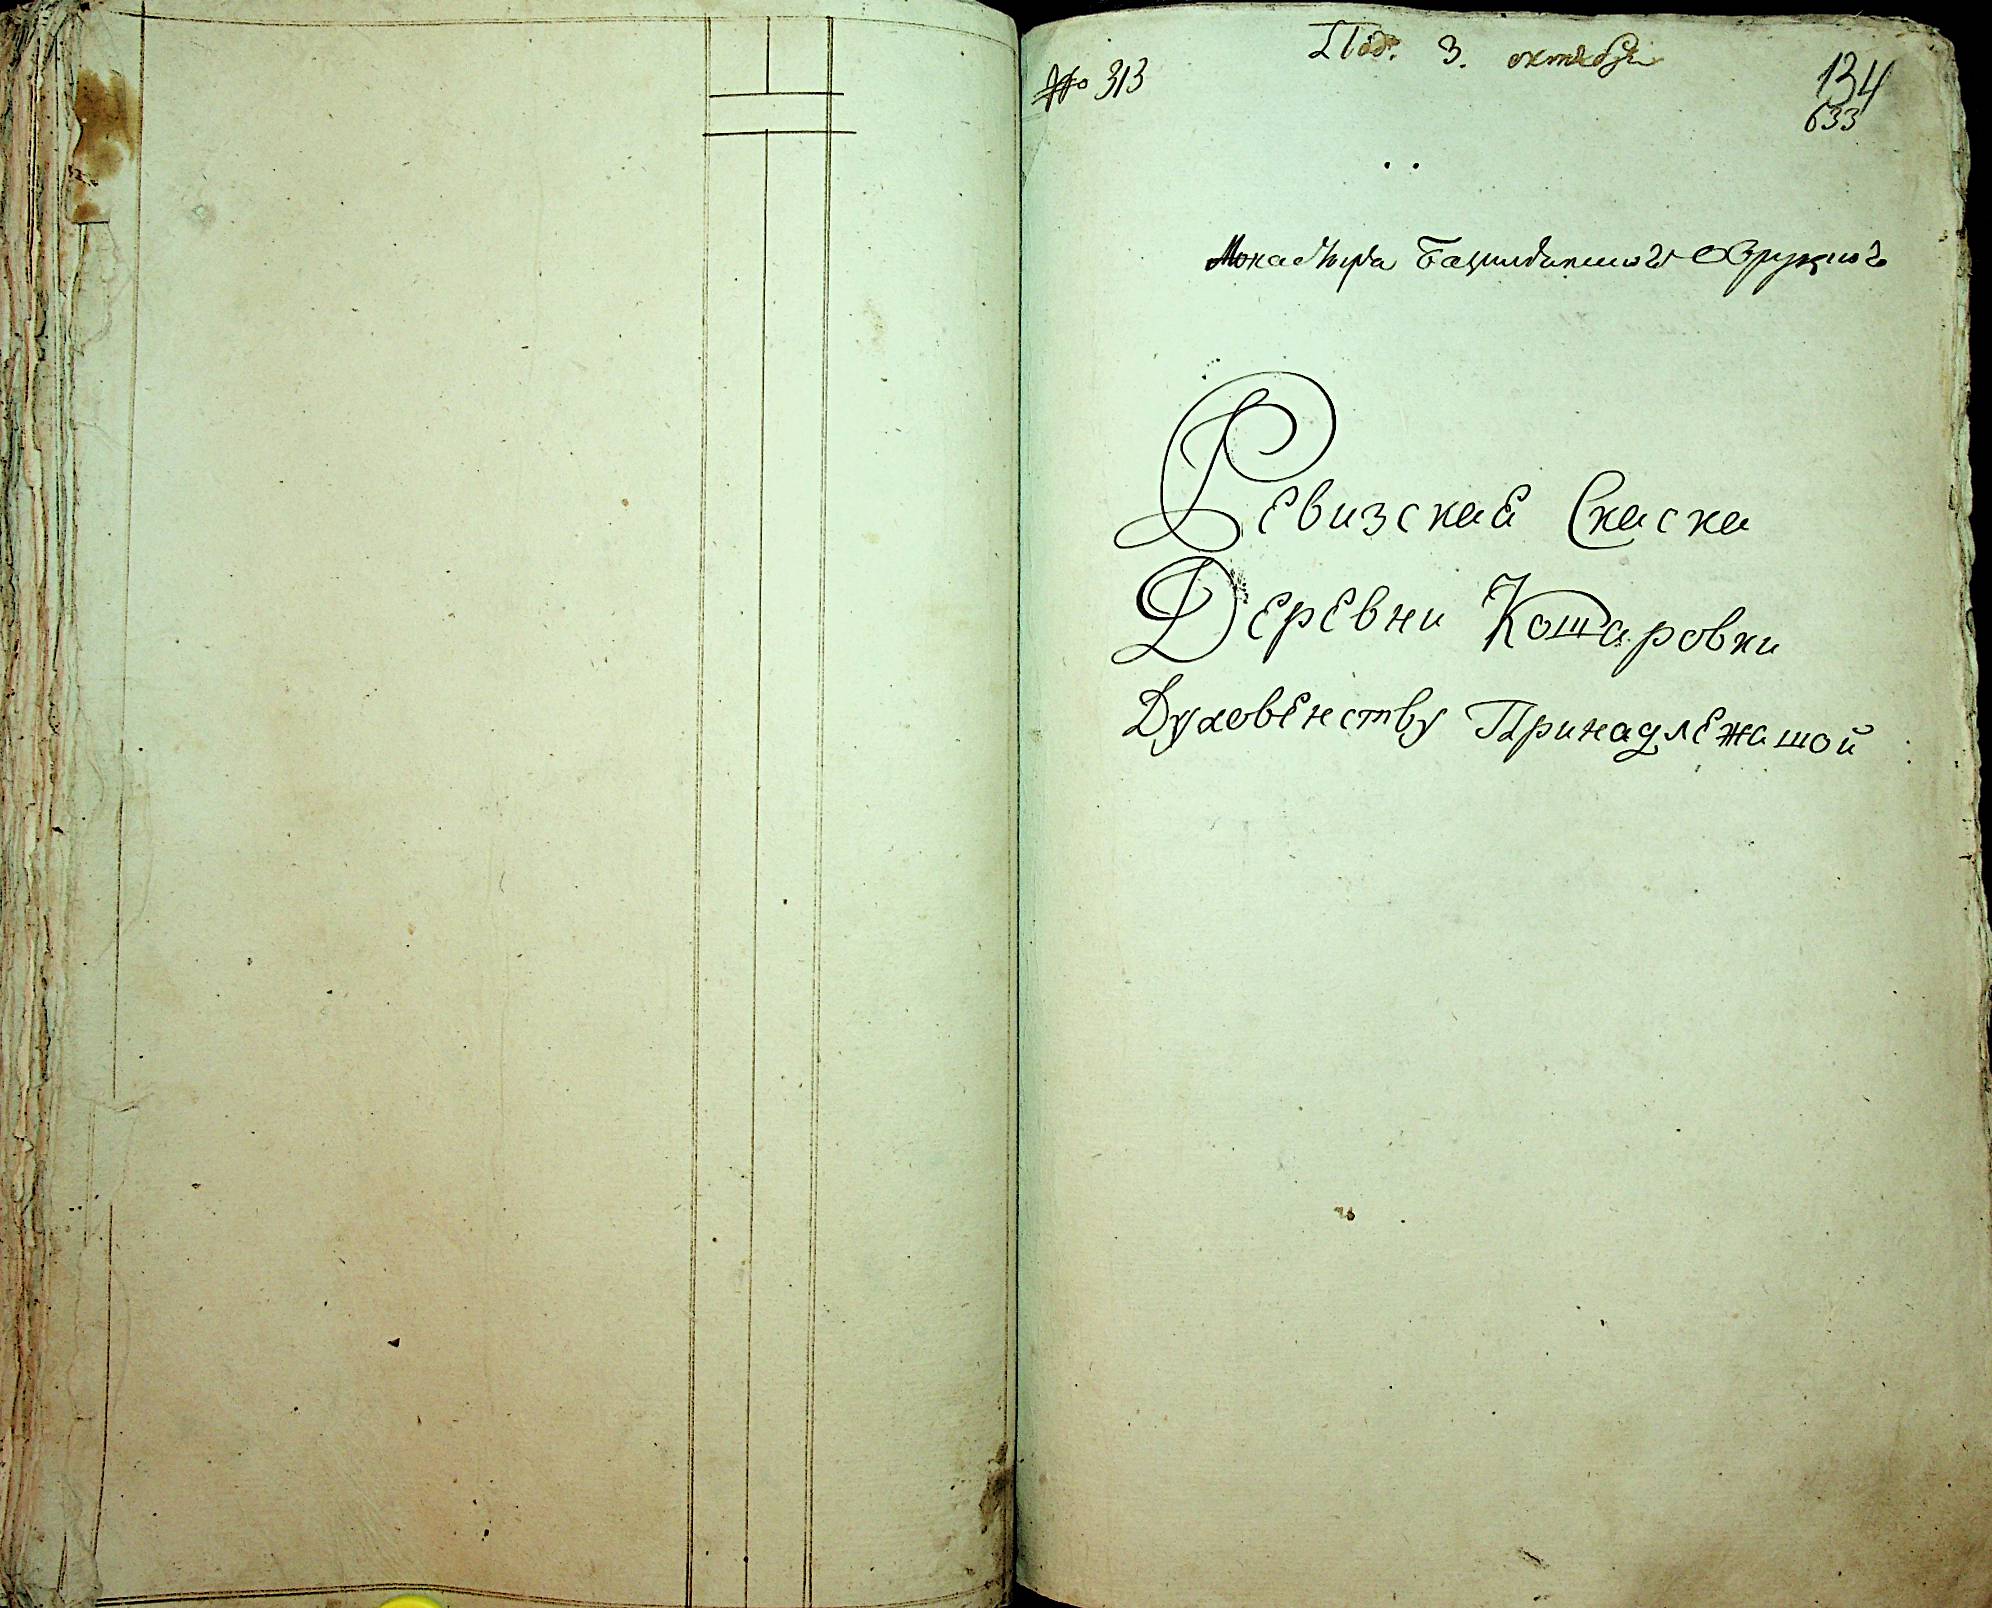 Под. 3. октября
№ 313
134
633
Монастыра Базилианского Овруцкого
Ревизская Скаска
Деревни Кошаровки
Духовенству Принадлежашой